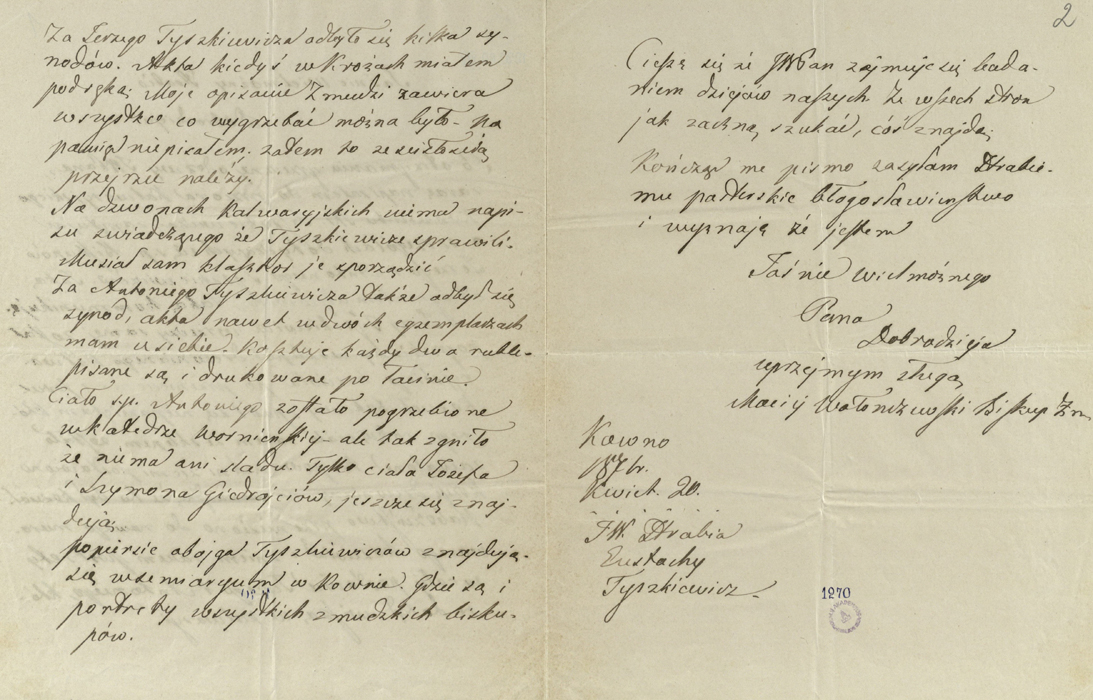 Za Jerzego Tyszkiewicza odbyło się kilka sy-
nodów. Akta kiedyś w Krożach miałem
pod ręką; Moje opisanie Żmudzi zawiera
wszystko co wygrzebać można było - na
pamięć nie pisałem. zatem to ze ścisłością
przejrzeć należy.
Na dzwonach Kalwaryjskich niema napi-
su świadczącego że Tyszkiewicze sprawili.
Musiał sam klasztor je sporządzić
Za Antoniego Tyszkiewicza także odbył się
synod, akta nawet w dwóch egzemplarzach
mam u siebie. Kosztuje każdy dwa ruble -
pisane są i drukowane po łacinie.
Ciało s.p. Antoniego zostało pogrzebione
w katedrze Wornieńskiej - ale tak zgniło
że niema ani śladu. Tylko ciała Józefa
i Szymona Giedrajciów, jeszcze się znaj-
dują;
popiersie obojga Tyszkiewiczów znajdują
się w semaryum w Kownie. Gdzie są i
portrety wszystkich zmudzkich bisku-
pów.
2
Cieszę się że JWPan zajmuje się bada-
niem dziejów naszych. Ze wszech stron
jak zaczną szukać, cóś znajdą;
Kończąc me pismo zasyłam Hrabie-
mu pasterskie błogosławieństwo
i wyznaję że jestem
Jaśnie wielmożnego
Pana
Dobrodzieja
uprzejmym sługą
Maciej Wołonczewski Biskup Żm
Kowno
187 r.
Kwiet. 20.
JW. Hrabia
Eustachy
Tyszkiewicz.
1270